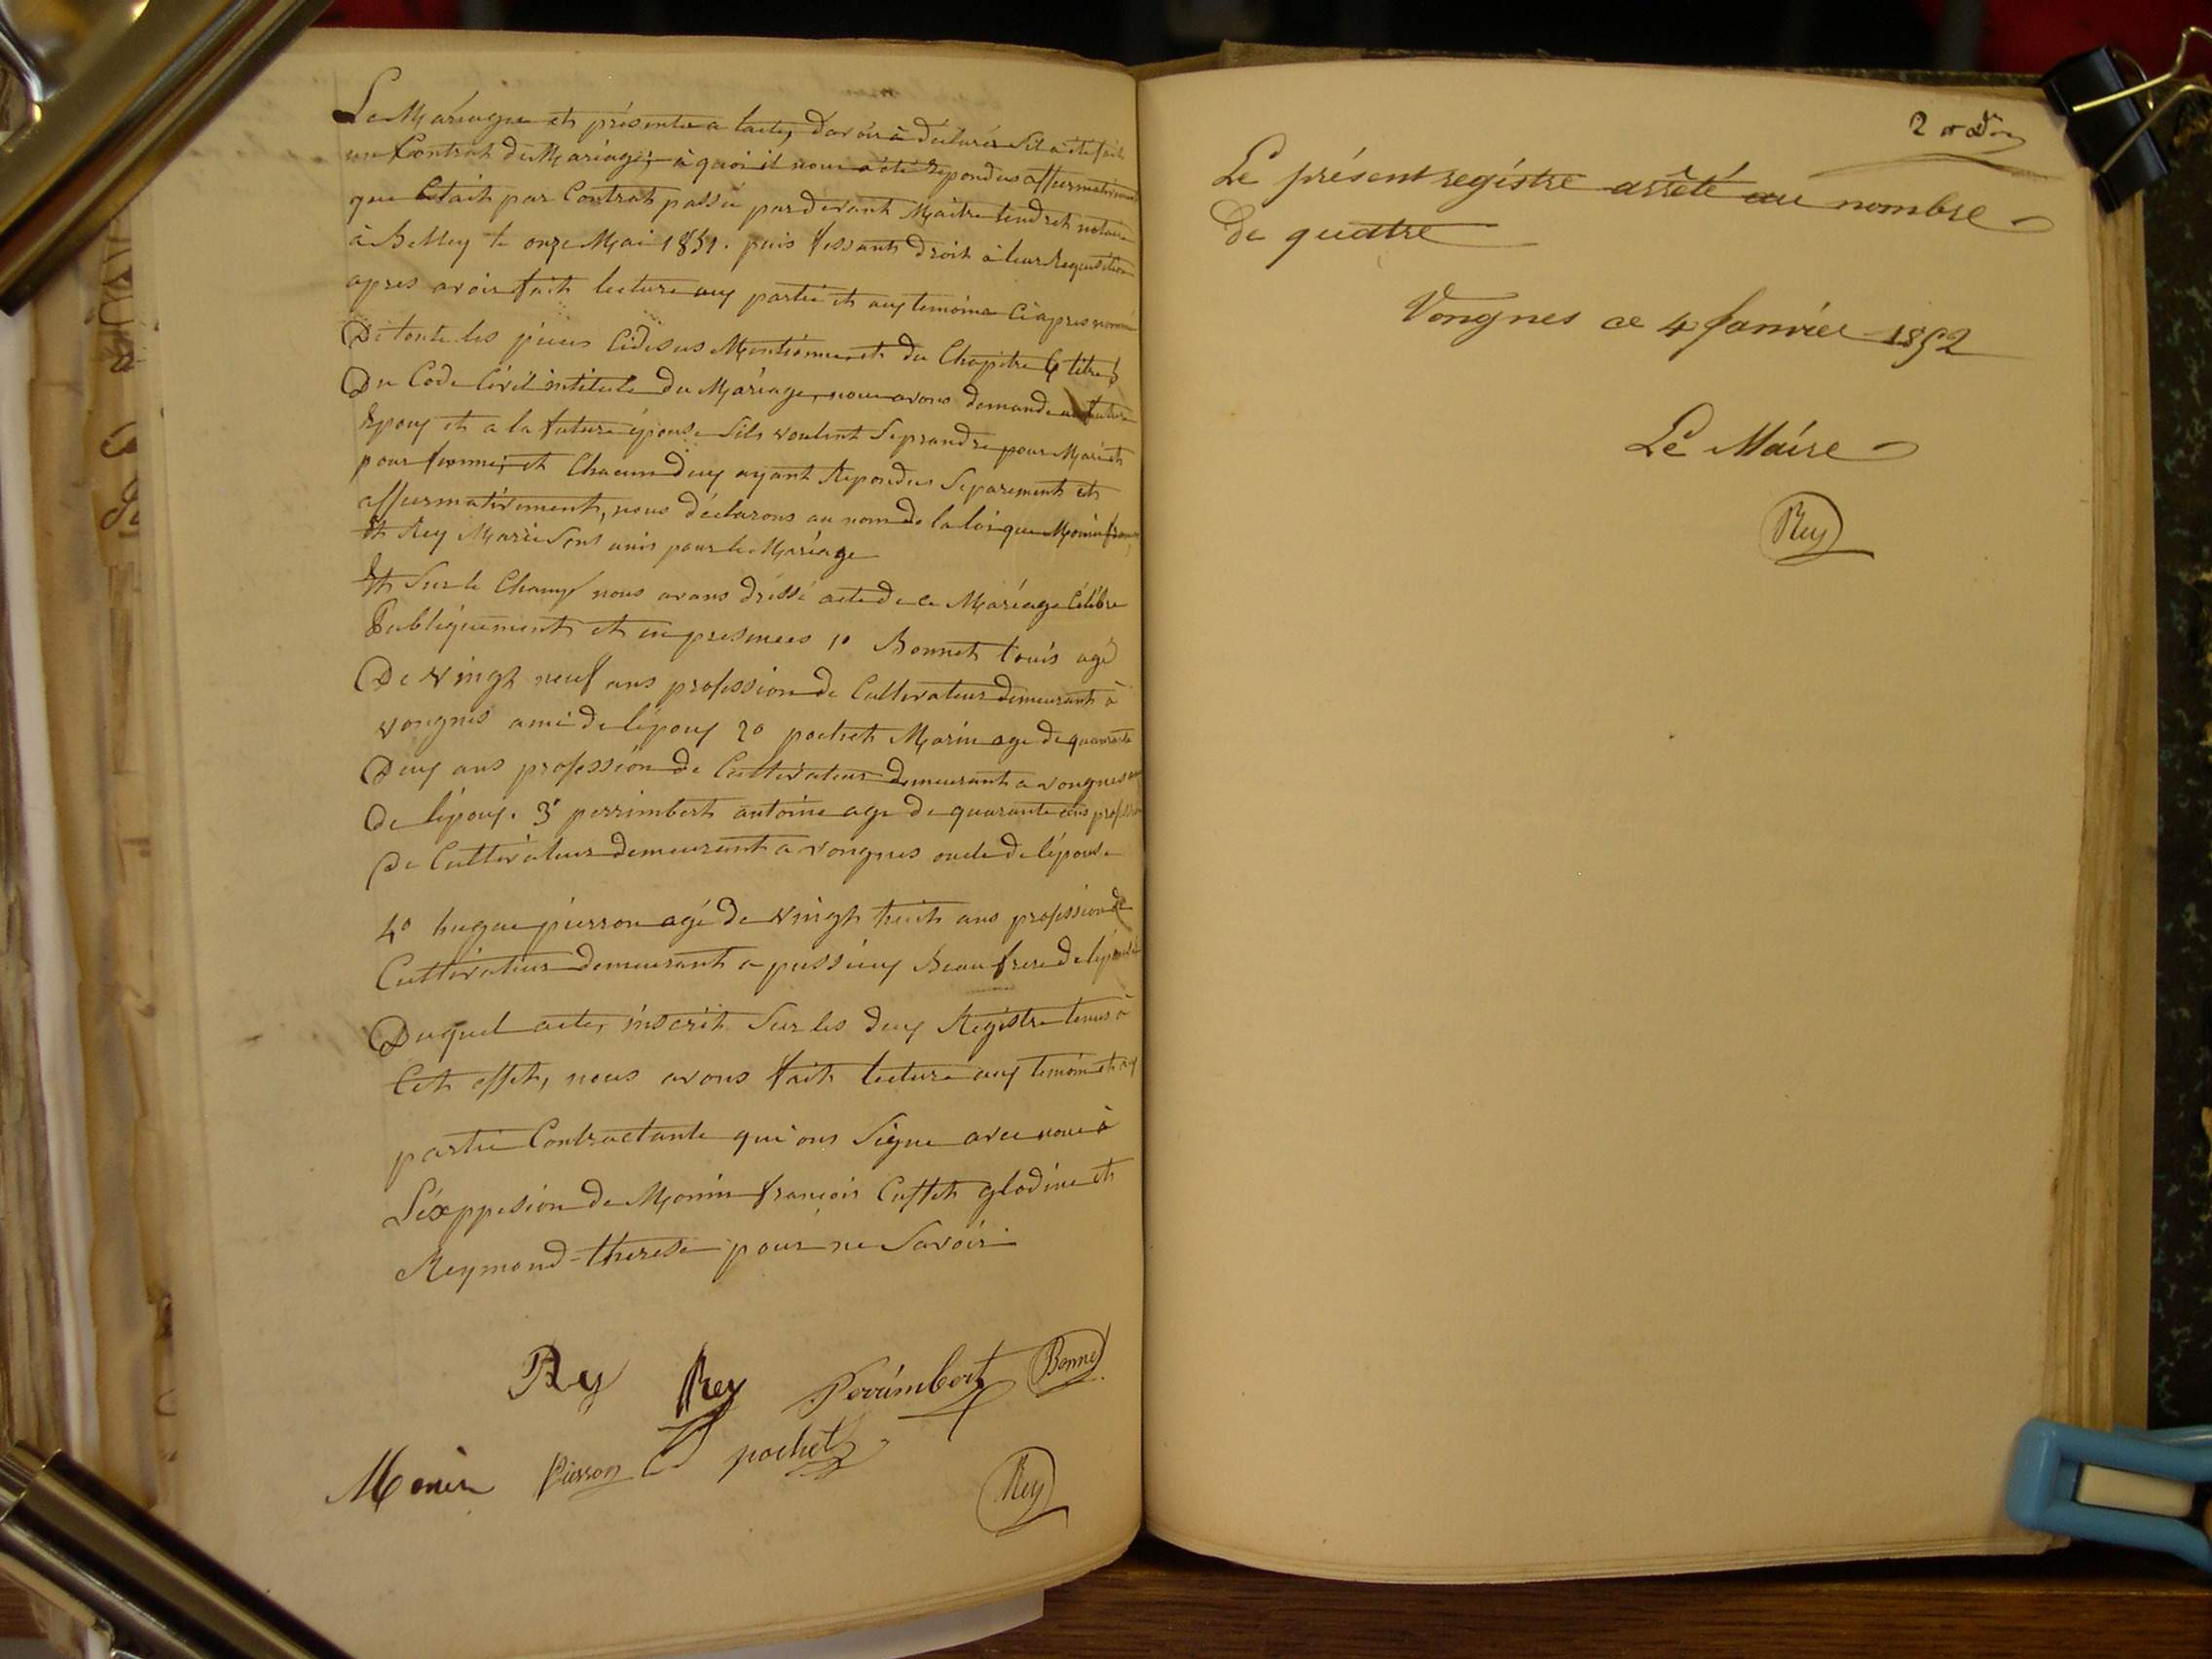 Le Mariage et présente a lacte, davoir à déclaré Sil a été fait
un Contrat de Mariage, à quoi il nous a été répondus affirmativement
que Cétait par Contrat passé pardevant Maitre tendret notaire
à Belley le onze Mai 1851. puis fessant droit à leur Requisition
apres avoir fait lecture aux partie et aux temoins Ciapres nommé
De toute les pieces Cidesus Mentionne et du Chapitre 6 titre 5
Du Code Civil intitulé Du Mariage, nous avons demandé au future
Epoux et a la future épouse Sils voulent Se prandre pour Mari et
pour femme, et Chacun Deux ayant Répondus Séparement et
affirmativement, nous déclarons au nom de la loi que Monin françois
Et Rey Marie Sont unis pour le Mariage
Et Sur le Champ nous avons dréssé acte de ce Mariage Célébre
Publiquement et en presences 1º Bonnet Louis agé
De Vingt neuf ans profession de Cultivateur demeurant à
vongnes ami de lépoux 2º pochet Marin age de quarante
Deux ans profession de Cultivateur demeurant a vongnes ami
de lépoux. 3º perrimbert antoine age de quarante ans profession
De Cultivateur demeurant a vongnes oncle de lépouse
4º hugue pierron agé de Vingt huit ans profession de
Cultivateur demeurant a pussieux Beau frere de lépouse
Duquel acte, inscrit Sur les deux Régistre tenus à
Cet effet, nous avons fait lecture aux temoin et aux
partie Contractante qui ons Signe avec nous à
Léxppesion de Monin françois Cuffet glodine et
Reymond therese pour ne Savoir
Rey Rey Perrimbert Bonnet
Monin Pierron pochet
Rey
Le présent registre arrêté au nombre
de quatre
Vongnes ce 4 Janvier 1852
Le Maire
Rey